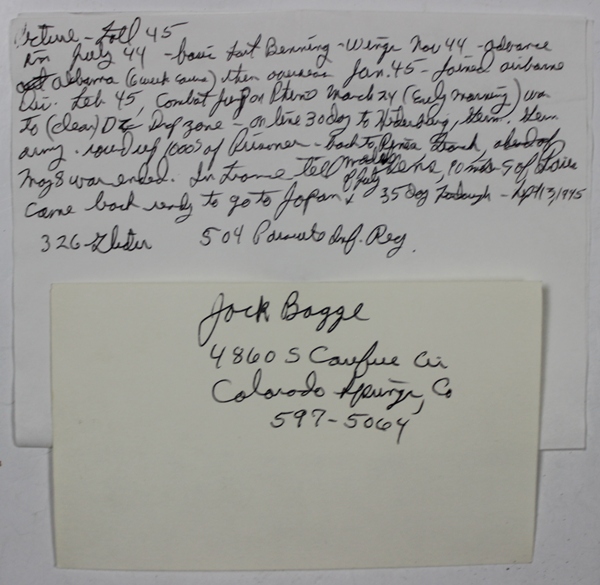 Picture - Fall 45
In July 44 - basic Fort Benning - Wings Nov 44 - advance
Alabama (6 week course) then overseas Jan. 45 - Joined airborne
Div. Feb 45, Combat jump on Rhine March 24 (Early morning) was
to (clear) Drop zone - on line 30 day to Germ. Germ
army. round up 1000's of Prisoner - Back to France, end of
May 8 war ended. In France tell middle of July, 90 miles of Paris
Came back ready to go to Japan 35 day Furlough - 13, 1945
326 Glider 504 Parachute Inf. Reg.
Jack Bagge
4860 S Carefree Cir
Colorado Springs, Co
597-5064